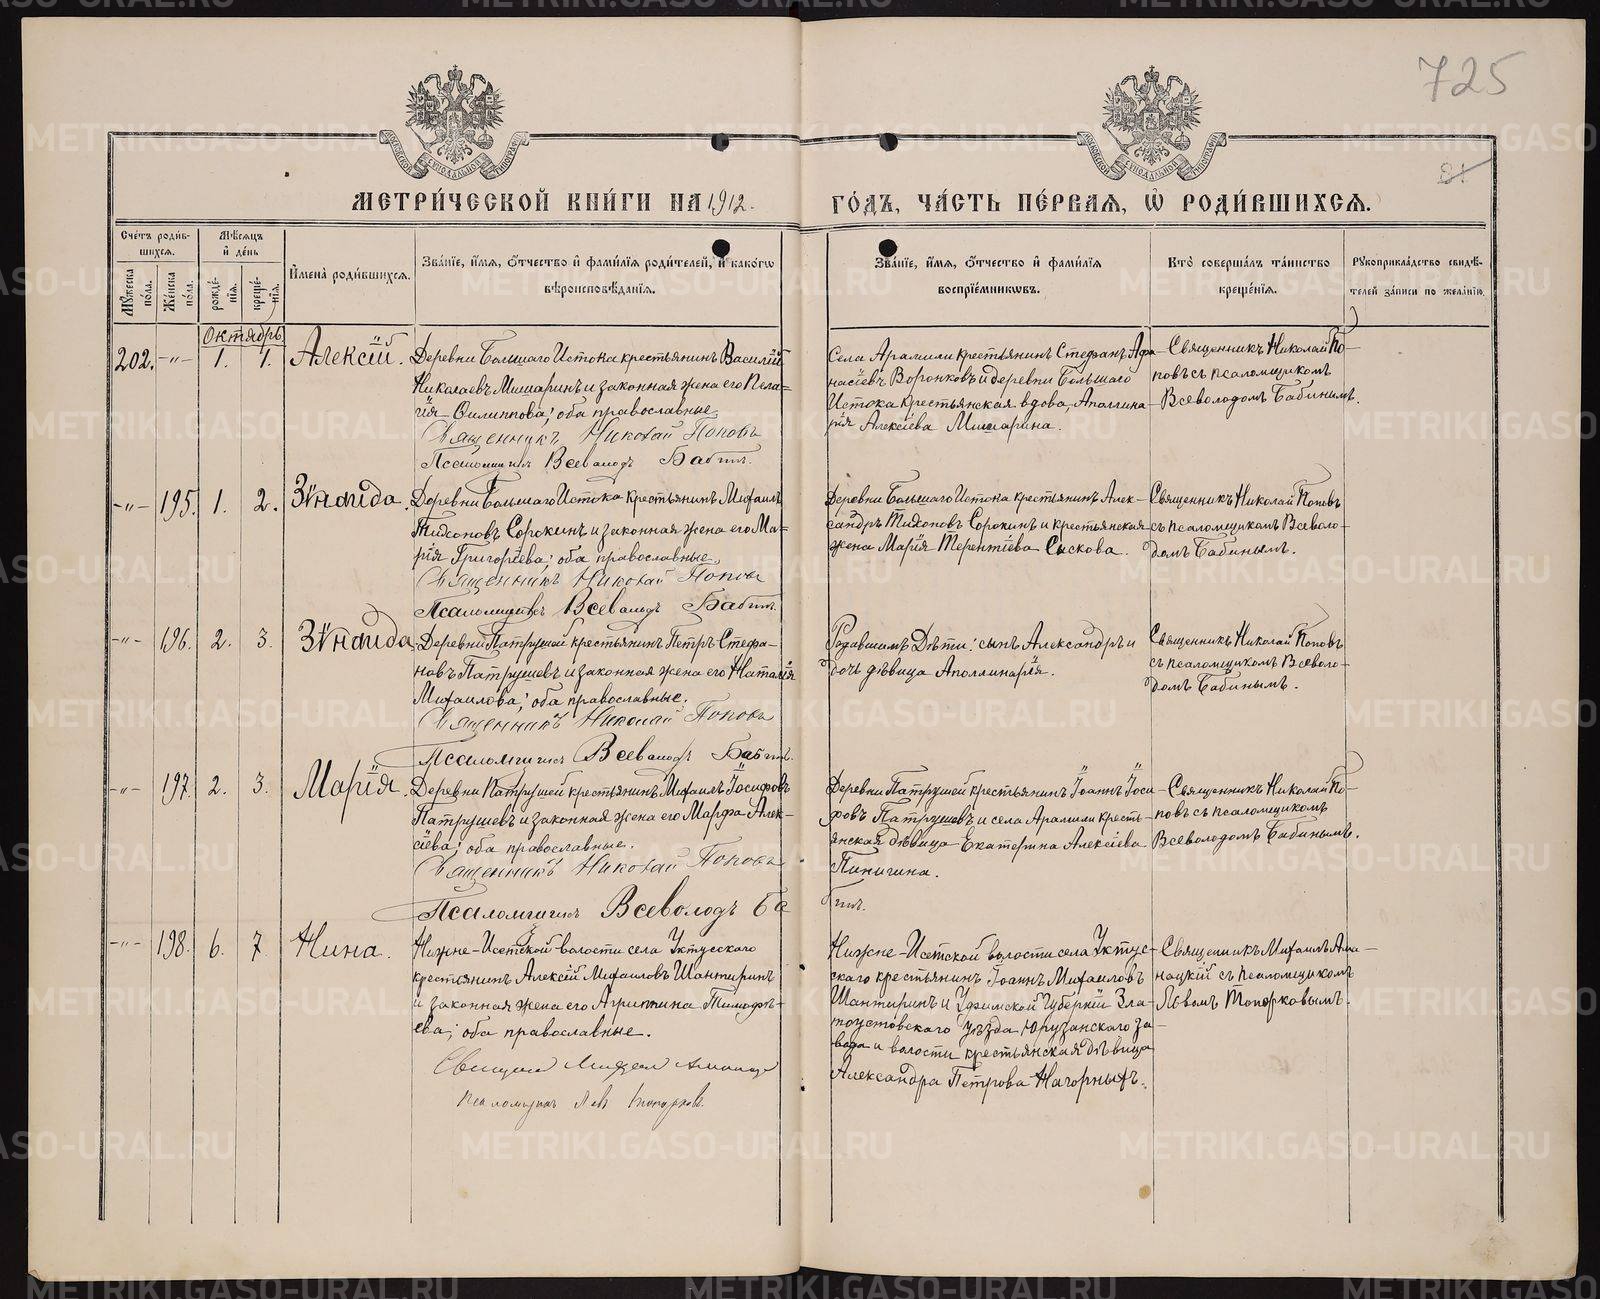 725
21
МЕТРИ́ЧЕСКОЙ КНИ́ГИ НА 1912.
ГО́ДЪ, ЧА́СТЬ ПЕ́РВАѦ, Ѡ҆ РОДИ́ВШИХСѦ.
Сче́тъ роди́в-
шихсѧ.
Мꙋ́жеска по́ла.
Же́нска по́ла.
Мѣ́сѧцъ
и҆ де́нь
рожде́-
нїѧ.
креще́-
нїѧ.
И҆мена̀ роди́вшихсѧ.
Зва́нїе, и҆́мѧ, ѻ҆́тчество и҆ фами́лїѧ роди́телей, и҆ како́гѡ
вѣроисповѣ́данїѧ.
Зва́нїе, и҆́мѧ, ѻ҆́тчество и҆ фами́лїѧ
воспрїе́мникѡвъ.
Кто̀ соверша́лъ та́инство
креще́нїѧ.
Рꙋкоприкла́дство свидѣ́-
телей за́писи по жела́нїю.
Октябрь
202. -"- 1. 1. Алексій.
Деревни Большаго Истока крестьянинъ Василій
Николаевъ Мишаринъ и законная жена его Пела-
гія Филиппова; оба православные
Священникъ Николай Поповъ
Псаломщикъ Всеволодъ Бабинъ.
Села Арамили крестьянинъ Стефанъ Афа-
насіевъ Воронковъ и деревни Большаго
Истока крестьянская вдова, Аполлина-
рія Алексіева Мишарина.
Священникъ Николай По-
повъ съ псаломщикомъ
Всеволодомъ Бабинымъ.
-"- 195. 1. 2. Зѵнаида.
Деревни Большаго Истока крестьянинъ Михаилъ
Тихоновъ Сорокинъ и законная жена его Ма-
рія Григоріева; оба православные.
Священникъ Николай Поповъ
Псаломщикъ Всеволодъ Бабинъ.
Деревни Большаго Истока крестьянинъ Алек-
сандръ Тихоновъ Сорокинъ и крестьянская
жена Марія Терентіева Сыскова.
Священникъ Николай Поповъ
съ псаломщикомъ Всеволо-
домъ Бабинымъ.
-"- 196. 2. 3. Зѵнаида
Деревни Патрушей крестьянинъ Петръ Стефа-
новъ Патрушевъ и законная жена его Наталія
Михаилова; оба православные.
Священникъ Николай Поповъ
Псаломщикъ Всеволодъ Бабинъ.
Родившимъ Дѣти: сынъ Александръ и
дочь дѣвица Аполлинарія.
Священникъ Николай Поповъ
съ псаломщикомъ Всеволо-
домъ Бабинымъ.
-"- 197. 2. 3. Марія.
Деревни Патрушей крестьянинъ Михаилъ Іосифовъ
Патрушевъ и законная жена его Марфа Алек-
сіева; оба православные.
Священникъ Николай Поповъ
Псаломщикъ Всеволодъ Ба
бинъ.
Деревни Патрушей крестьянинъ Іоаннъ Іоси-
фовъ Патрушевъ и села Арамили кресть-
янская дѣвица Екатерина Алексіева
Пинигина.
Священникъ Николай По-
повъ съ псаломщикомъ
Всеволодомъ Бабинымъ.
-"- 198. 6. 7. Нина.
Нижне-Исетской волости села Уктусского
крестьянинъ Алексій Михаиловъ Шантаринъ
и законная жена его Агриппина Тимофе-
ева; оба православные.
Священ Михаил
псаломщикъ Левъ Топорковъ.
Нижне-Исетской волости села Уктус-
скаго крестьянинъ Іоаннъ Михаиловъ
Шантаринъ и Уфимской Губерніи Зла-
тоустовскаго уѣзда Юрузанскаго за-
вода и волости крестьянская дѣвица
Александра Петрова Нагорныхъ.
Священникъ Михаилъ
съ псаломщикомъ
Львомъ Топорковымъ.
METRIKI.GASO-URAL.RU